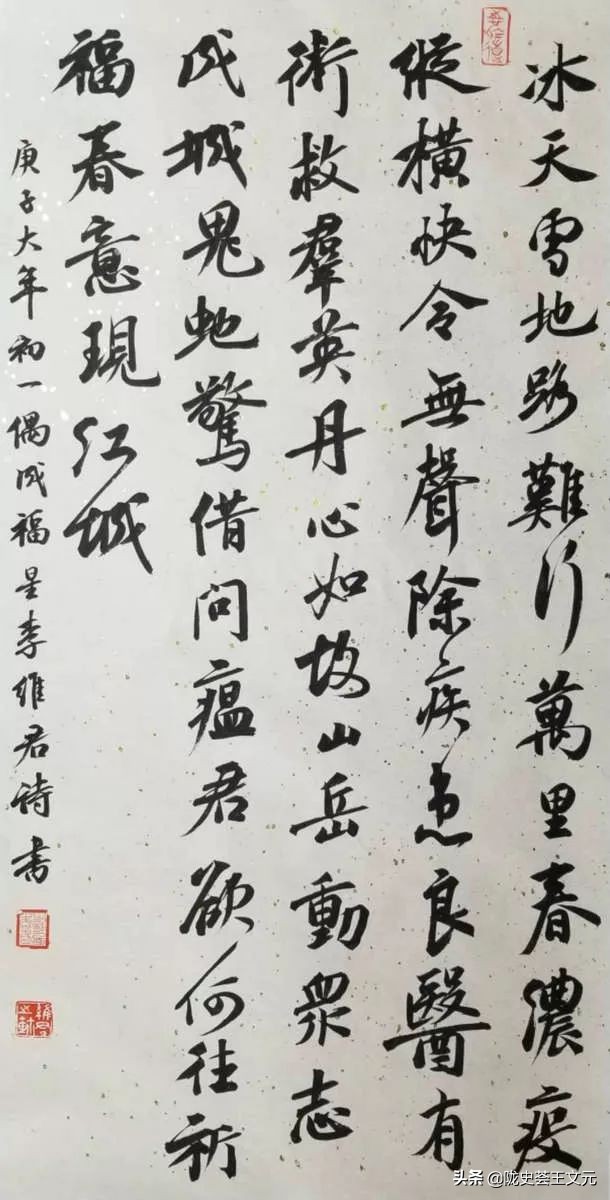 冰天雪地路難行萬里春濃疫
縱橫快令無聲除疾患良醫有
術救羣英丹心如故山岳動眾志
成城鬼虵驚借問瘟君欲何往祈
福春意現江城
庚子大年初一偶成福星李維君詩書
头条 @陇史荟王文元